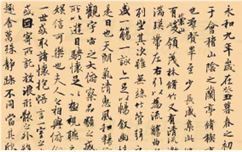 永和九年歲在癸丑暮春之初
于會稽山陰之蘭亭脩稧
也羣賢畢至少長咸集此
領茂林脩竹又有清流
湍暎帶左右引以為流觴曲
列坐其次雖無絲竹管弦
盛一觴一詠亦足以暢敘幽
是日也天朗氣清惠風和暢
觀宇宙之大俯察品類之盛
所以遊目騁懷足以極視聽
娛信可樂也夫人之相與
一世或取諸懷抱悟言一室之
或因寄所託放浪形骸之
趣舍萬殊靜躁不同當其欣